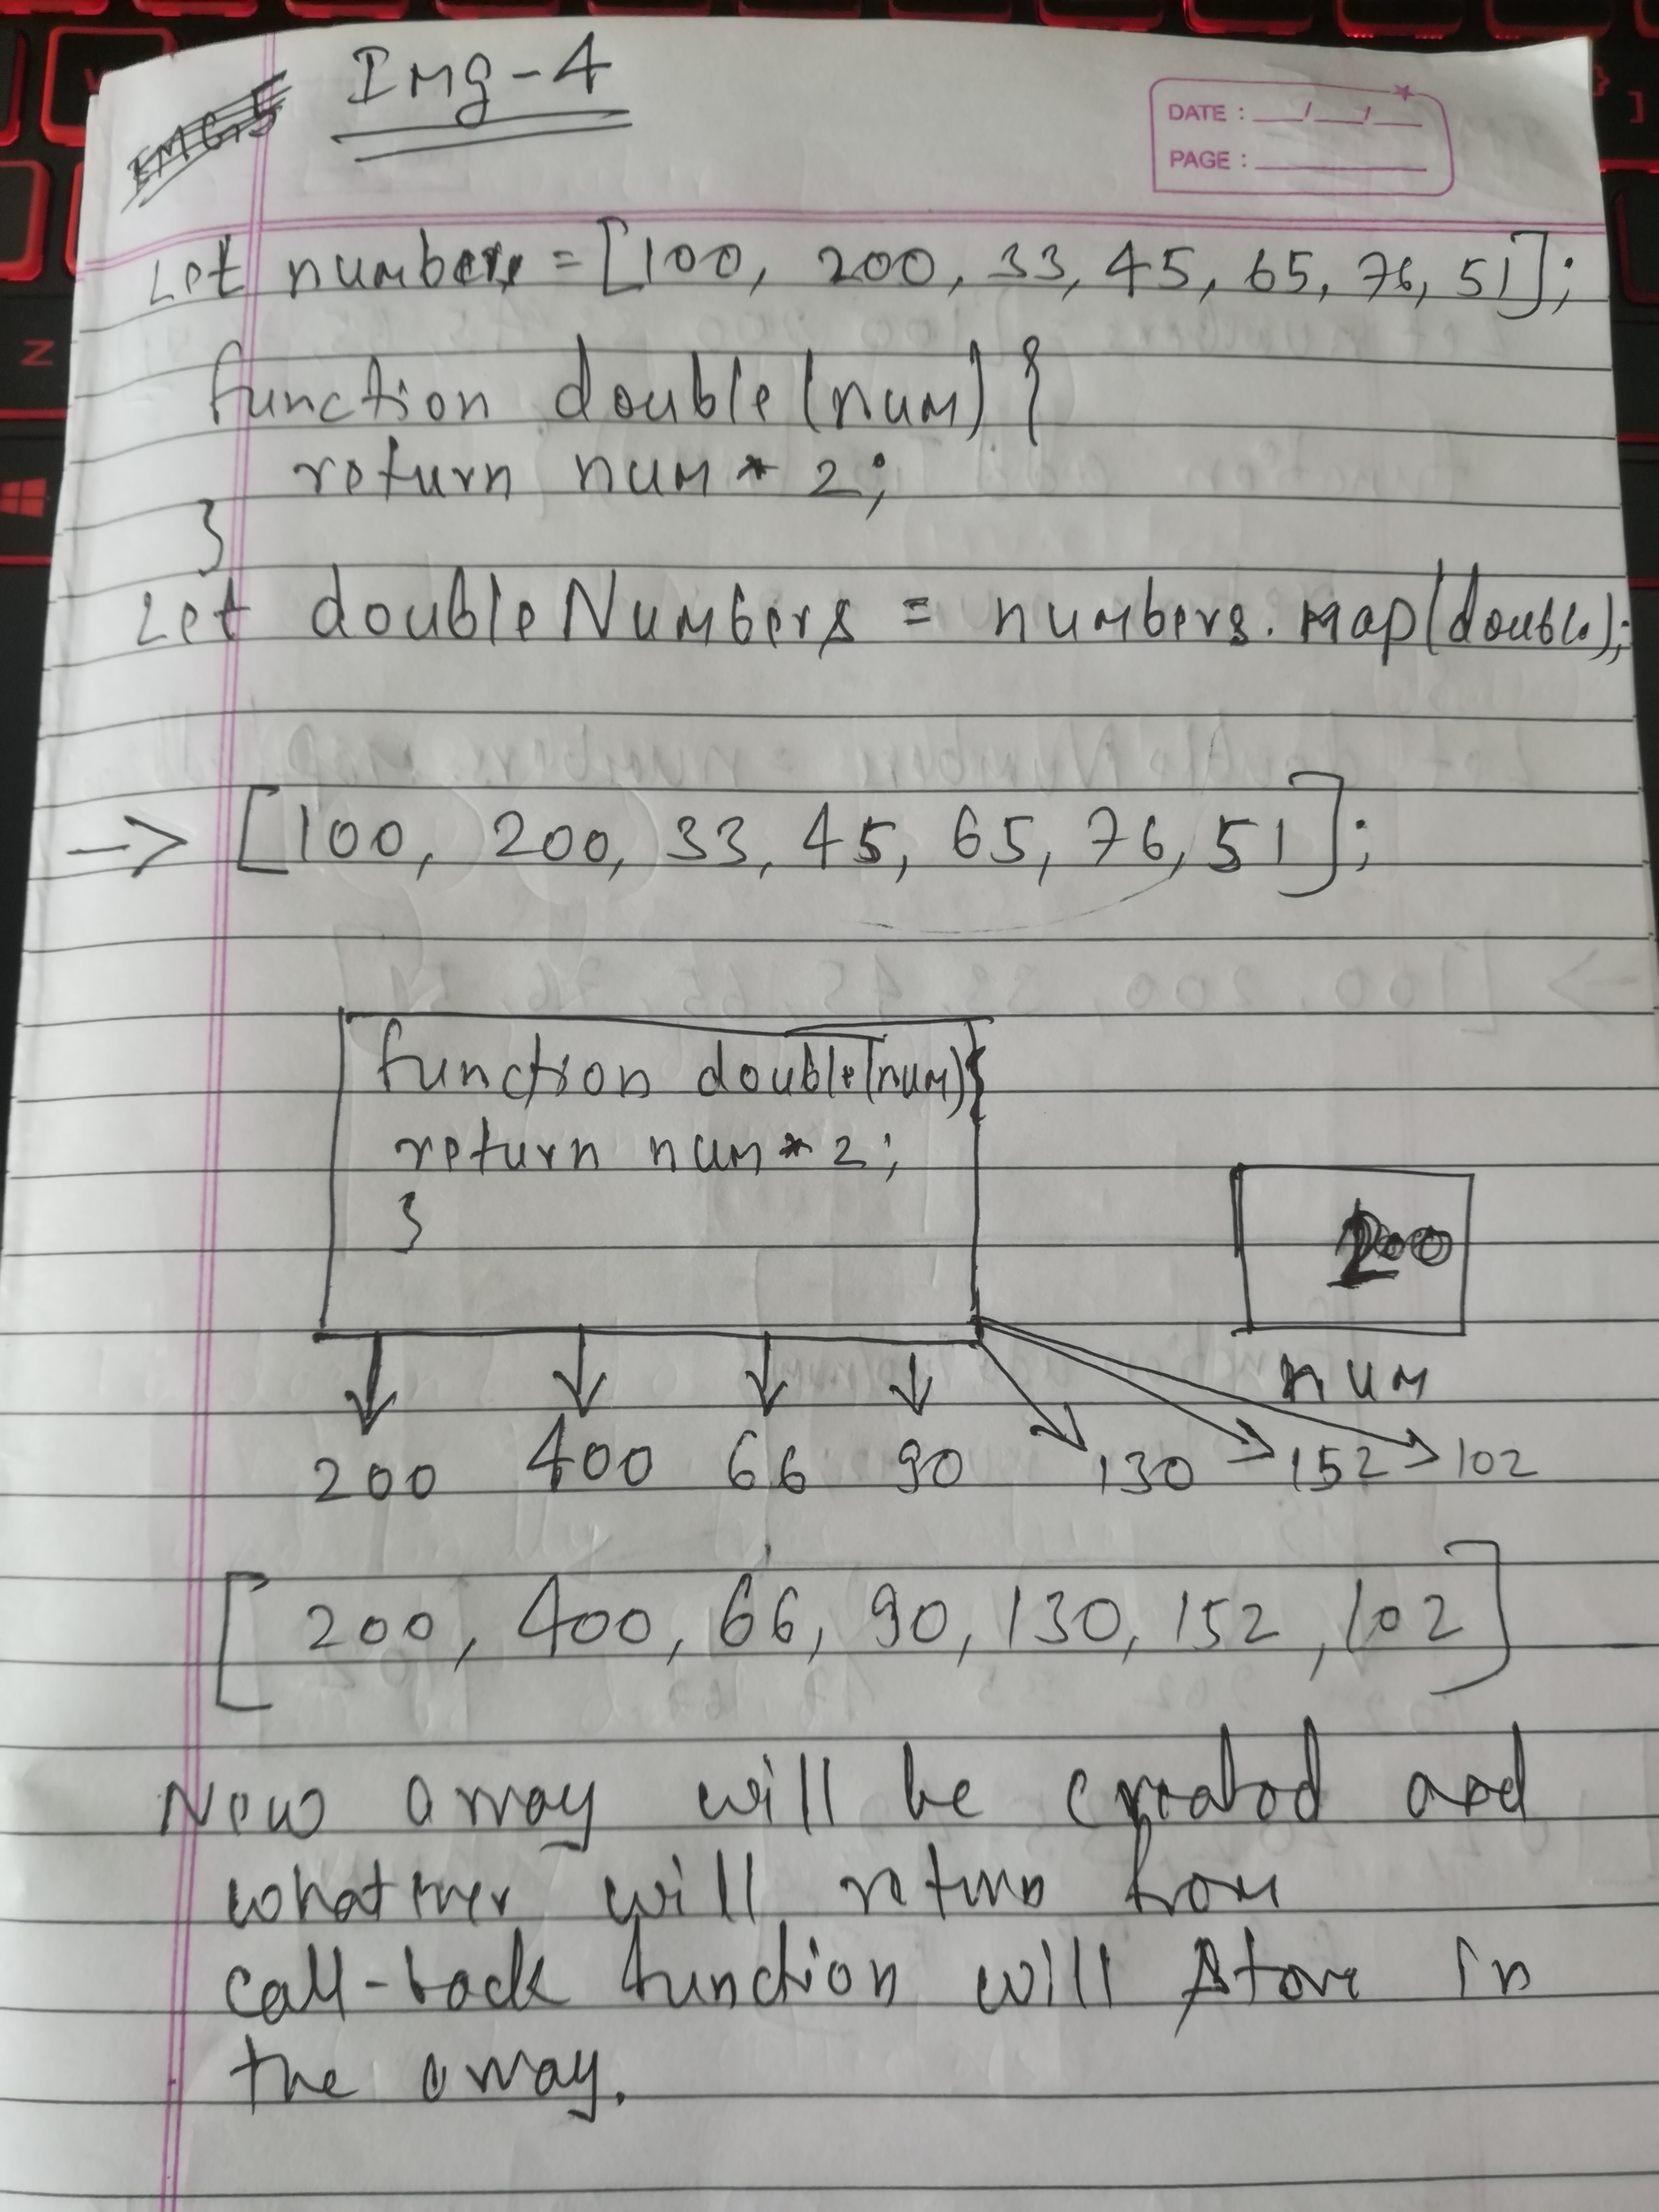 IMG-5
Img-4
DATE : __/__/__
PAGE : ______
Let numbers = [100, 200, 33, 45, 65, 76, 51];
function double (num) {
return num * 2;
}
Let doubleNumbers = numbers.map(double);
-> [100, 200, 33, 45, 65, 76, 51];
function double(num){
return num * 2;
}
200
num
200 400 66 90 130 152 102
[200, 400, 66, 90, 130, 152, 102]
New array will be created and
whatever will return from
call-back function will store in
the array.